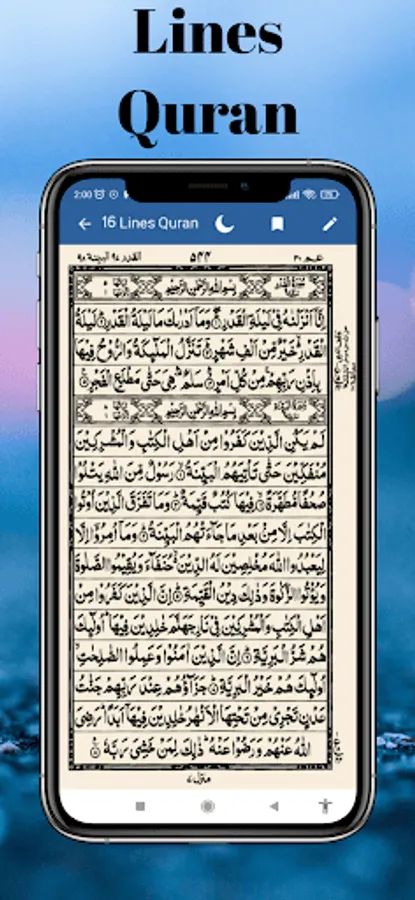 Lines
Quran
2:00
16 Lines Quran
القدر ٩٧ البينة ٩٨
٥٤٤
عم ٣٠
بِسْمِ اللهِ الرَّحْمٰنِ الرَّحِيْمِ
اِنَّآ اَنْزَلْنٰهُ فِيْ لَيْلَةِ الْقَدْرِ ۝ وَمَآ اَدْرٰىكَ مَا لَيْلَةُ الْقَدْرِ ۝ لَيْلَةُ
الْقَدْرِ خَيْرٌ مِّنْ اَلْفِ شَهْرٍ ۝ تَنَزَّلُ الْمَلٰٓئِكَةُ وَالرُّوْحُ فِيْهَا
بِاِذْنِ رَبِّهِمْ مِّنْ كُلِّ اَمْرٍ ۝ سَلٰمٌ هِيَ حَتّٰى مَطْلَعِ الْفَجْرِ ۝
بِسْمِ اللهِ الرَّحْمٰنِ الرَّحِيْمِ
لَمْ يَكُنِ الَّذِيْنَ كَفَرُوْا مِنْ اَهْلِ الْكِتٰبِ وَالْمُشْرِكِيْنَ
مُنْفَكِّيْنَ حَتّٰى تَاْتِيَهُمُ الْبَيِّنَةُ ۝ رَسُوْلٌ مِّنَ اللهِ يَتْلُوْا
صُحُفًا مُّطَهَّرَةً ۝ فِيْهَا كُتُبٌ قَيِّمَةٌ ۝ وَمَا تَفَرَّقَ الَّذِيْنَ اُوْتُوا
الْكِتٰبَ اِلَّا مِنْ بَعْدِ مَا جَآءَتْهُمُ الْبَيِّنَةُ ۝ وَمَآ اُمِرُوْٓا اِلَّا
لِيَعْبُدُوا اللهَ مُخْلِصِيْنَ لَهُ الدِّيْنَ حُنَفَآءَ وَيُقِيْمُوا الصَّلٰوةَ
وَيُؤْتُوا الزَّكٰوةَ وَذٰلِكَ دِيْنُ الْقَيِّمَةِ ۝ اِنَّ الَّذِيْنَ كَفَرُوْا مِنْ
اَهْلِ الْكِتٰبِ وَالْمُشْرِكِيْنَ فِيْ نَارِ جَهَنَّمَ خٰلِدِيْنَ فِيْهَا اُولٰٓئِكَ
هُمْ شَرُّ الْبَرِيَّةِ ۝ اِنَّ الَّذِيْنَ اٰمَنُوْا وَعَمِلُوا الصّٰلِحٰتِ
اُولٰٓئِكَ هُمْ خَيْرُ الْبَرِيَّةِ ۝ جَزَآؤُهُمْ عِنْدَ رَبِّهِمْ جَنّٰتُ
عَدْنٍ تَجْرِيْ مِنْ تَحْتِهَا الْاَنْهٰرُ خٰلِدِيْنَ فِيْهَآ اَبَدًا رَضِيَ
اللهُ عَنْهُمْ وَرَضُوْا عَنْهُ ذٰلِكَ لِمَنْ خَشِيَ رَبَّهٗ ۝
منزل ٧